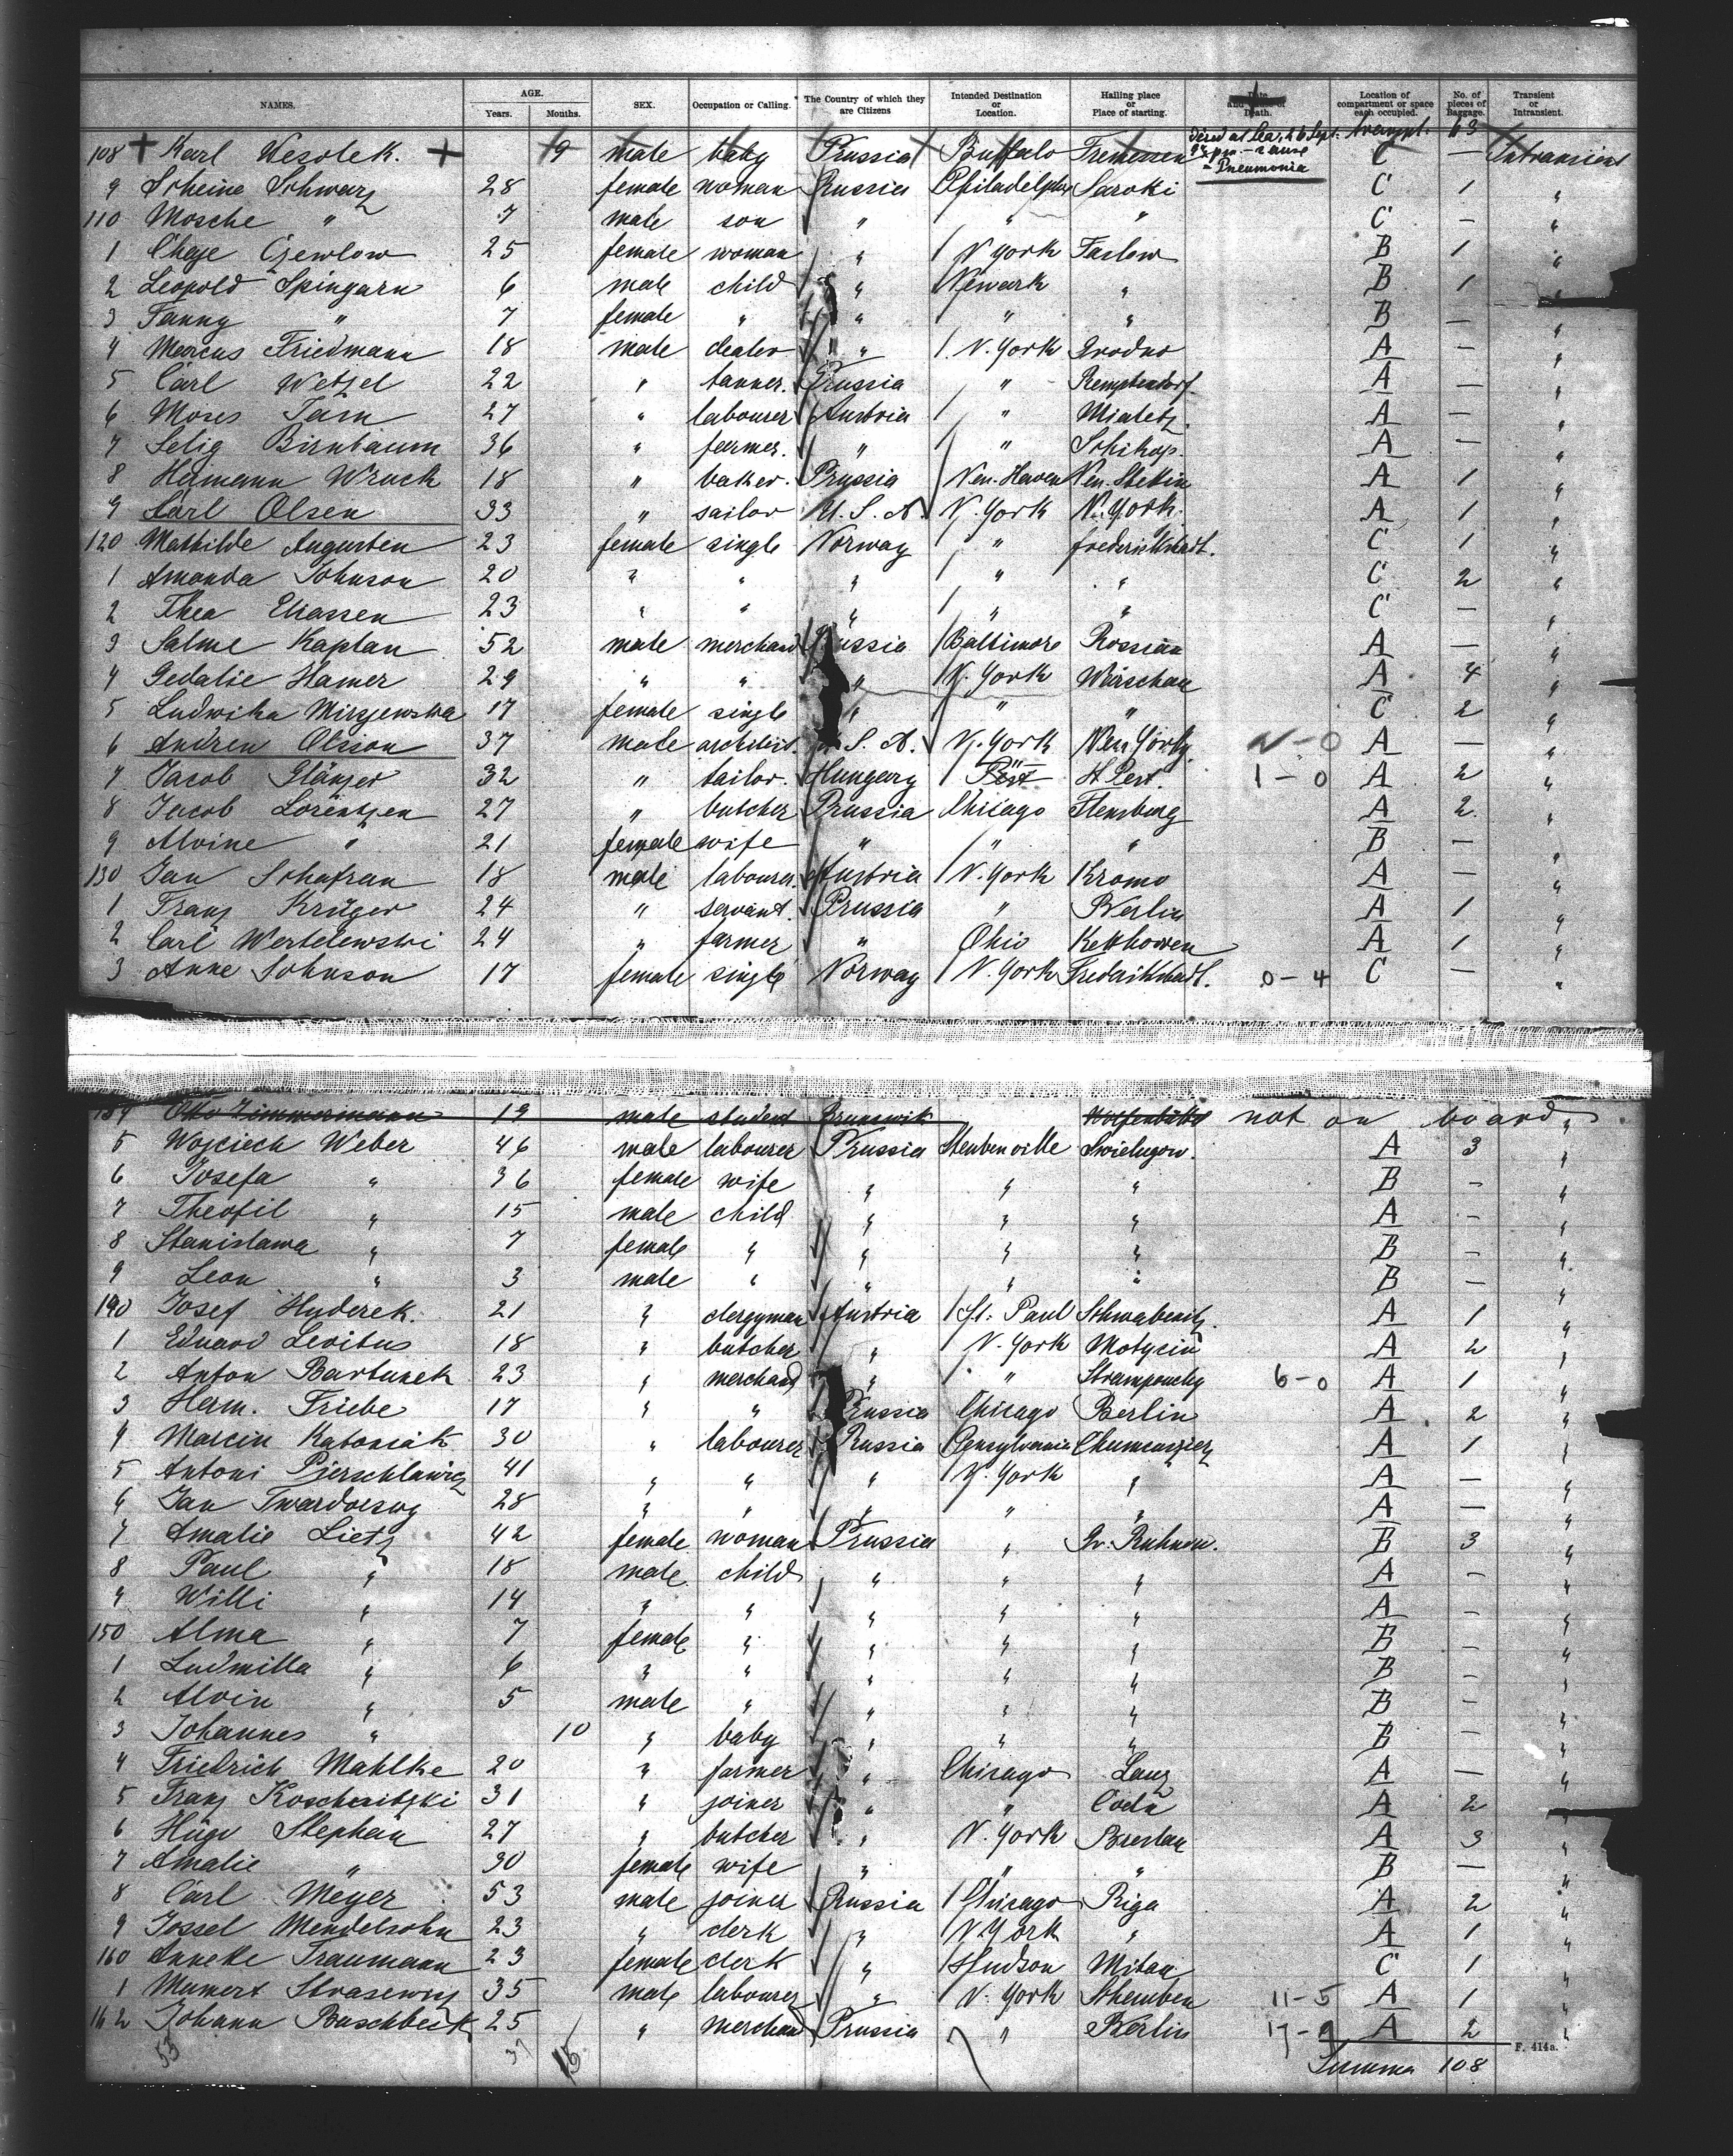 NAMES. AGE. Years. Months. SEX. Occupation or Calling. The Country of which they are Citizens Intended Destination or Location. Hailing place or Place of starting. Date and Cause of Death. Location of compartment or space each occupied. No. of pieces of Baggage. Transient or Intransient.
Died at Sea, 26 Sept. Transpt. 63
108 + Karl Wesolek. + 9 male baby Prussia Buffalo Tremessen C — Intransient
Pneumonia
9 Scheine Schwarz 28 female woman Russia Philadelphia Saroki C 1 "
110 Mosche " 7 male son " " " C — "
1 Chaje Czewlow 25 female woman " N. York Taslow B 1 "
2 Leopold Spingarn 6 male child " Newark " B 1 "
3 Fanny " 7 female " " " " B — "
4 Marcus Friedmann 18 male dealer " N. York Grodno A — "
5 Carl Wetzel 22 " tanner. Prussia " Remptendorf. A — "
6 Moses Tarn 27 " labourer Austria " Mieletz. A — "
7 Selig Birnbaum 36 " farmer. " " A — "
8 Hermann Wruck 18 " baker. Prussia New-Haven Neu-Stettin A 1 "
9 Carl Olsen 33 " sailor U. S. A. N. York N. York. A 1 "
120 Mathilde Augusten 23 female single Norway " Frederikstadt. C 1 "
1 Amanda Johnson 20 " " " " " C 2 "
2 Thea Eliassen 23 " " " " " C — "
3 Salme Kaplan 52 male merchand Russia Baltimore Rossian A — "
4 Gedalie Hamer 29 " " " N. York Warschau A 4 "
5 Ludwika Mirzjewska 17 female single " " " C 2 "
6 Andrew Olsson 37 male architect. U. S. A. N. York New York. A — "
7 Jacob Glänzer 32 " tailor. Hungary Pest Pest. 1 — 0 A 2 "
8 Jacob Lorentzen 27 " butcher Prussia Chicago Flensburg A 2 "
9 Alvine " 21 female wife " " " B — "
130 Jan Schafran 18 male labourer. Austria N. York Kromo A — "
1 Franz Krüger 24 " servant. Prussia " Berlin A 1 "
2 Carl Wertelewski 24 " farmer " Ohio Kekhowen A 1 "
3 Anne Johnson 17 female single Norway N. York Fredrikstadt. 0 — 4 C — "
134 Otto Zimmermann 19 male student Brunswik Wolfenbüttel not on board "
5 Wojciech Weber 46 male labourer Prussia Steubenville Swielugow. A 3 "
6 Josefa " 36 female wife " " " B — "
7 Theofil " 15 male child " " " A — "
8 Stanislawa " 7 female " " " " B — "
9 Leon " 3 male " " " " B — "
140 Josef Huderek. 21 " clergyman Austria St. Paul Schwabenitz. A 1 "
1 Eduard Levitus 18 " butcher " N. York Motycin A 2 "
2 Anton Bartunek 23 " merchand " " Strampouchy 6 — 0 A 1 "
3 Herm. Friebe 17 " " Prussia Chicago Berlin A 2 "
4 Marcin Katoniak 30 " labourer Russia Pensylvania A 1 "
5 Antoni Pierschlawicz 41 " " " N. York " A — "
6 Jan Twardoeswy 28 " " " " " A — "
7 Amalie Lietz 42 female woman Prussia " Gr. Ruhnow. B 3 "
8 Paul " 18 male child " " " A — "
9 Willi " 14 " " " " " A — "
150 Alma " 7 female " " " " B — "
1 Ludmilla " 6 " " " " " B — "
2 Alvin " 5 male " " " " B — "
3 Johannes " 10 " baby " " " B — "
4 Friedrich Mahlke 20 " farmer " Chicago Lanz A — "
5 Franz Koschnitzki 31 " joiner " " A 2 "
6 Hugo Stephan 27 " butcher " N. York Breslau A 3 "
7 Amalie " 30 female wife " " " B — "
8 Carl Meyer 53 male joiner Russia Chicago Riga A 2 "
9 Jossel Mendelsohn 23 " clerk " N York " A 1 "
160 Anneke Traumann 23 female clerk " Hudson Mitau C 1 "
1 Mumert Strasewicz 35 male labourer " N. York 11 — 5 A 1 "
162 Johann Buschbeck 25 " merchand Prussia " Berlin A 2 "
F. 414a.
53 37 15 Summa 108